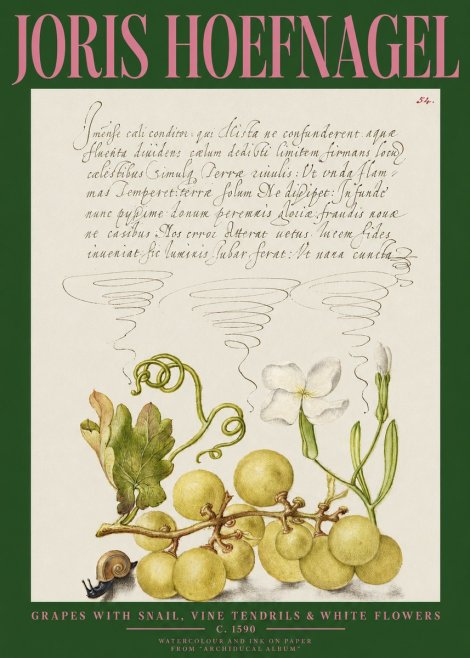 JORIS HOEFNAGEL
54.
Imense cæli conditor: qui Mista ne confunderent aquæ
fluenta diuidens cælum dedisti limitem firmans locū
cælestibus Simulq Terræ riuulis: Vt vnda flam-
mas Temperet: terræ solum Ne dissipet: Infunde
nunc pijssime donum perennis gloriæ, fraudis nouæ
ne casibus Nos error Atterat uetus. lucem fides
inueniat sic luminis Iubar ferat: Vt uana cuncta
GRAPES WITH SNAIL, VINE TENDRILS & WHITE FLOWERS
C. 1590
WATERCOLOUR AND INK ON PAPER
FROM "ARCHIDUCAL ALBUM"